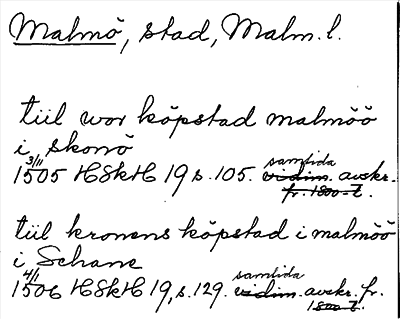 Malmö, stad, Malm. l.
tiil wor köpstad malmöö
i skonö
3/11 samtida
1505 HSkH 19 s. 105. vidim. avskr.
fr. 1800-t.
tiil kronens köpstad i malmöö
i Schane
4/1 samtida
1506 HSkH 19, s. 129. vidim. avskr. fr.
1800-t.